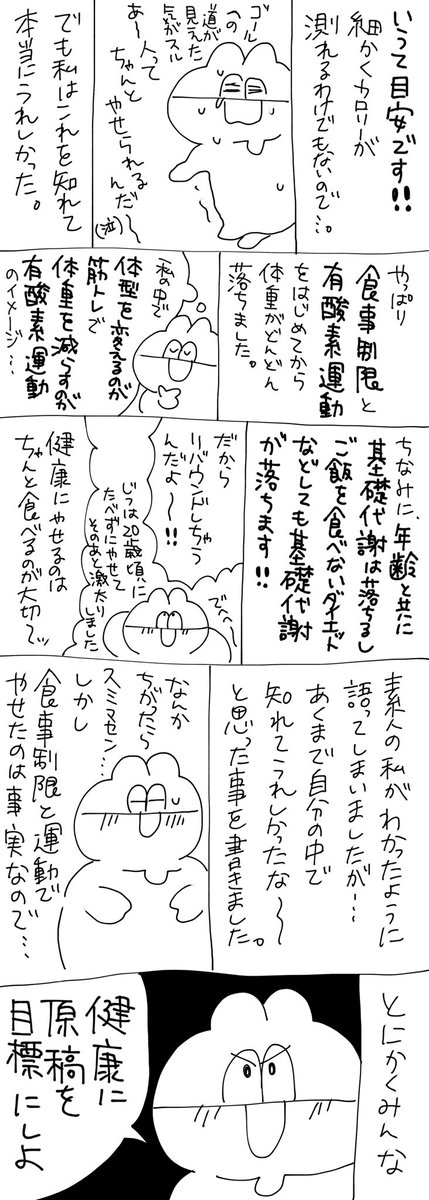 いって目安です!!
細かくカロリーが
測れるわけでもないので…。
ゴールへの
道が
見えた
気がスル
あ〜人って
ちゃんと
やせられる
んだ〜
(泣)
でも私はこれを知れて
本当にうれしかった。
やっぱり
食事制限と
有酸素運動
をはじめてから
体重がどんどん
落ちました。
私の中で
体型を変えるのが
筋トレで
体重を減らすのが
有酸素運動
のイメージ…
ちなみに、年齢と共に
基礎代謝は落ちるし
ご飯を食べないダイエット
などしても基礎代謝
が落ちます!!
だから
リバウンドしちゃう
んだよ〜!!
でへへ〜
じつは20歳頃に
たべずにやせて
そのあと激太りしました
健康にやせるのは
ちゃんと食べるのが大切〜ッ
素人の私がわかったように
語ってしまいましたが…
あくまで自分の中で
知れてうれしかったな〜
と思った事を書きました。
なんか
ちがったら
スミマセン…
しかし
食事制限と運動で
やせたのは事実なので…
とにかくみんな
健康に
原稿を
目標にしよ